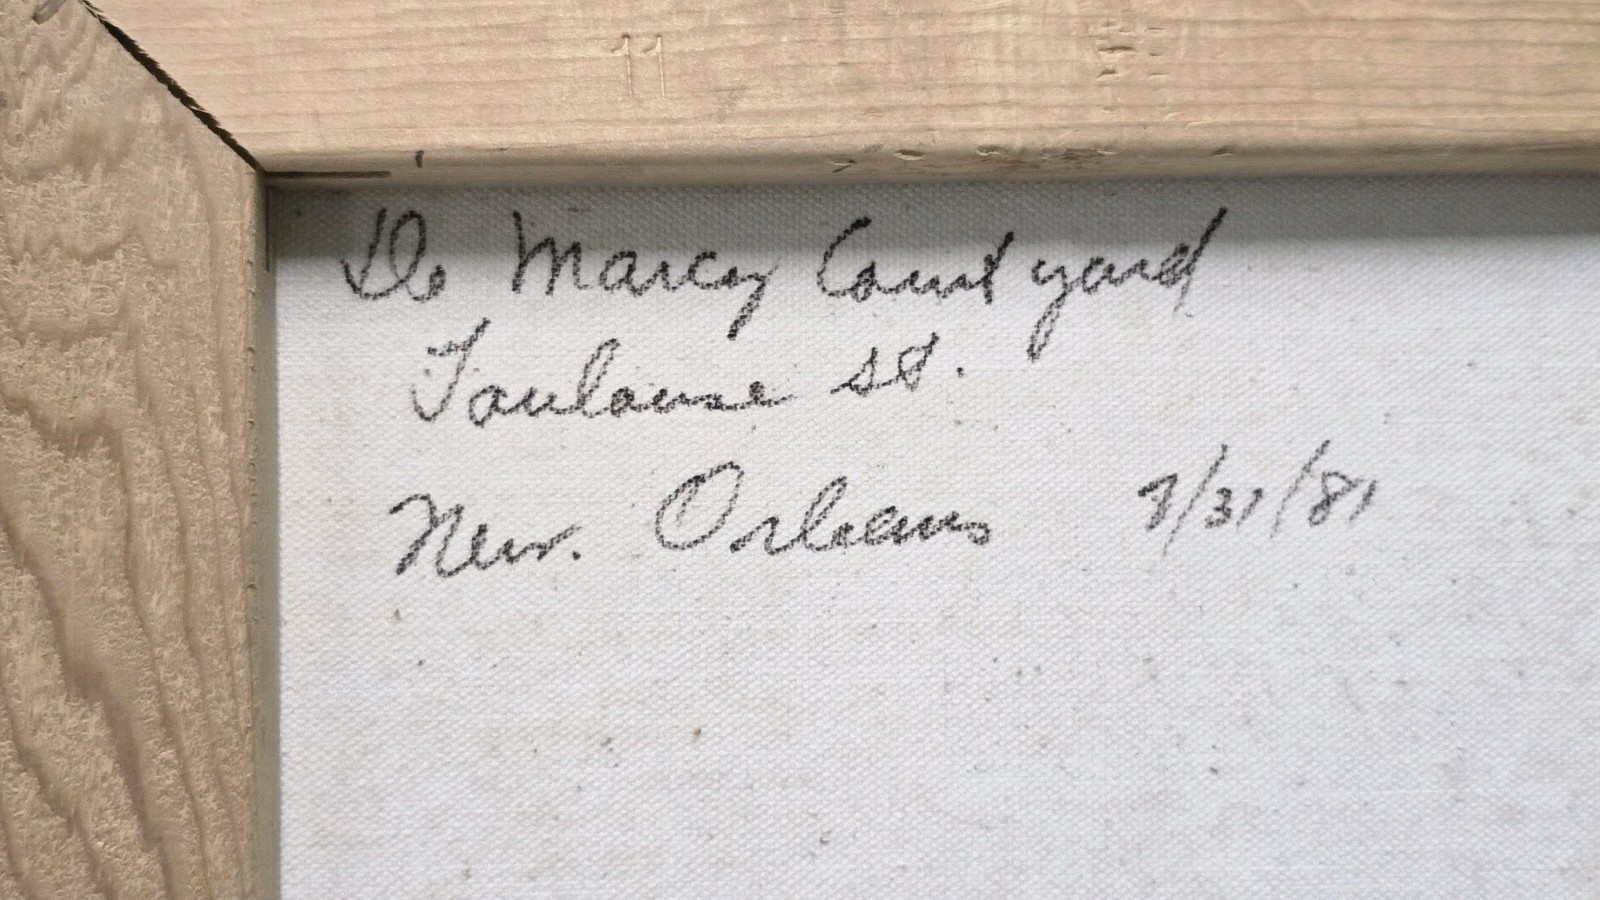 11
De Marcy Courtyard
Toulouse St.
New. Orleans 7/31/81